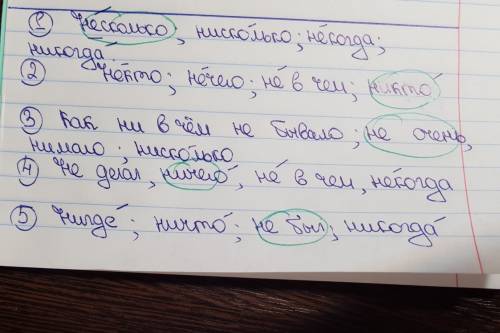 ① Не́сколько, ниско́лько; не́когда;
никогда́
② Не́кто; не́чего; не́ в чем; никто́
③ Как ни в чём не бывало; не очень,
нимало; ниско́лько
④ Не делал, ничего́, не́ в чем, не́когда
⑤ Нигде́; ничто́; не́ был; никогда́